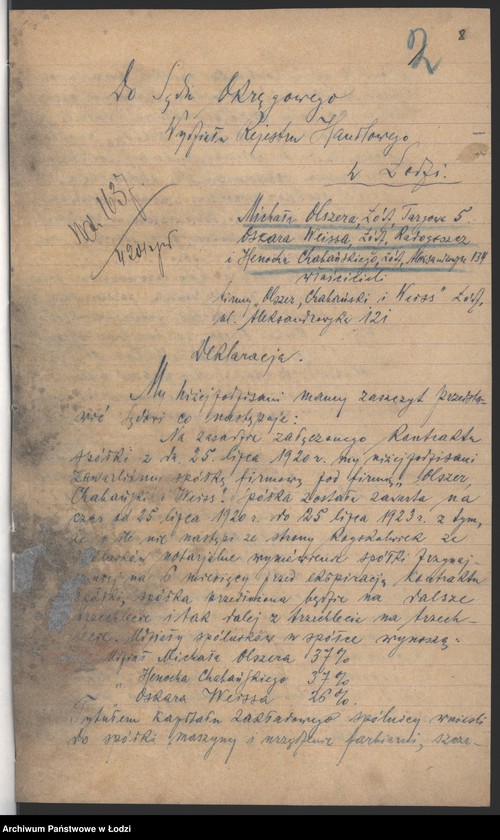 2 8
Do Sądu Okręgowego
Wydziału Rejestru Handlowego
w Łodzi.
Michała Olszera, Łódź, Targowa 5.
Oskara Weissa, Łódź, Radogoszcz
i Henocha Chabańskiego, Łódź, 134
właścicieli
firmy „Olszer, Chabański i Weiss" Łódź,
ul. Aleksandrowska 121
Deklaracja.
My niżej podpisani mamy zaszczyt przedsta-
wić Sądowi co następuje:
Na zasadzie załączonego kontraktu
spółki z dn. 25 lipca 1920 r. my niżej podpisani
zawarliśmy spółkę firmową pod firmą „Olszer,
Chabański i Weiss". Spółka została zawarta na
czas od 25 lipca 1920 r. do 25 lipca 1923 r. z tym,
że o ile nie nastąpi ze strony kogokolwiek ze
spólników notarjalne wymówienie spółki przynaj-
mniej na 6 miesięcy przed ekspiracją kontraktu
spółki, spółka przedłużona będzie na dalsze
trzechlecie i tak dalej z trzechlecia na trzech-
lecie. Udziały spólników w spółce wynoszą:
Michała Olszera 37%
" Henocha Chabańskiego 37%
" Oskara Weissa 26%.
Tytułem kapitału zakładowego spólnicy wnieśli
do spółki maszyny i urządzenie farbiarni, szcze-
Archiwum Państwowe w Łodzi